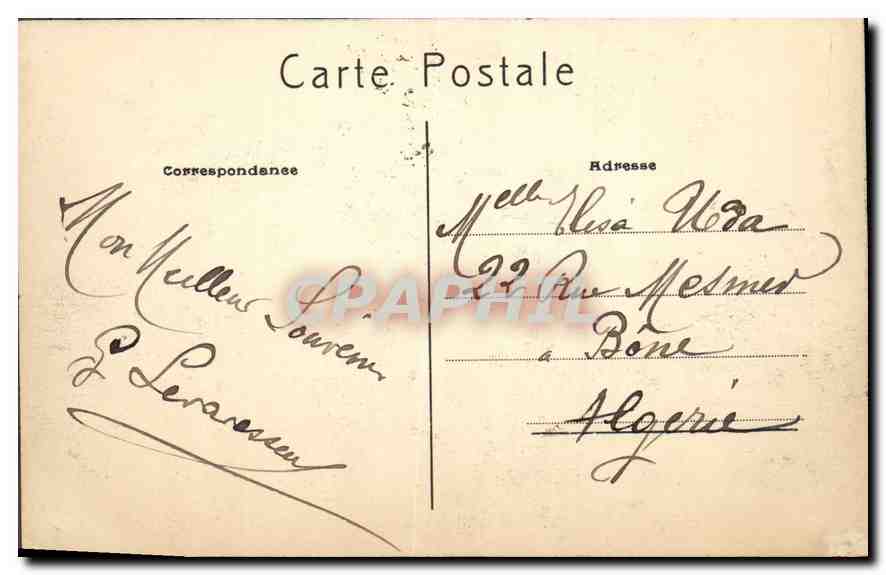 Carte Postale
Correspondance
Mon Meilleur Souvenir
Adresse
Melle Elisa Uda
22 Rue Mesmer
à Bône
Algérie
CPAPHIL